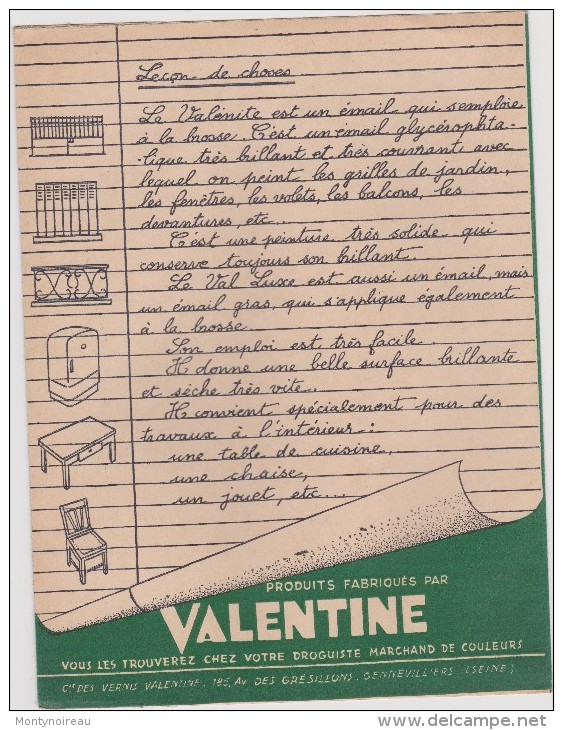 Leçon de choses
Le Valénite est un émail qui s'emploie
à la brosse. C'est un émail glycérophta-
-lique très brillant et très couvrant avec
lequel on peint les grilles de jardin,
les fenêtres, les volets, les balcons, les
devantures, etc..
C'est une peinture très solide qui
conserve toujours son brillant.
Le Val Luxe est aussi un émail, mais
un émail gras, qui s'applique également
à la brosse.
Son emploi est très facile.
Il donne une belle surface brillante
et sèche très vite.
Il convient spécialement pour des
travaux à l'intérieur :
une table de cuisine,
une chaise,
un jouet, etc...
PRODUITS FABRIQUÉS PAR
VALENTINE
VOUS LES TROUVEREZ CHEZ VOTRE DROGUISTE MARCHAND DE COULEURS
Cie DES VERNIS VALENTINE. 185, AV. DES GRÉSILLONS. GENNEVILLIERS (SEINE).
Montynoireau
www.delcampe.net